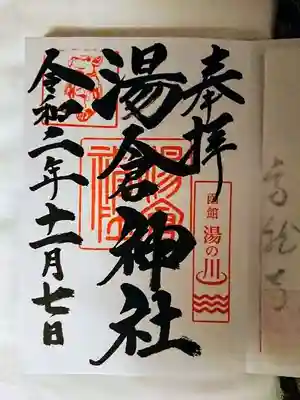 奉拝
函館 湯の川
湯倉神社
令和二年十一月七日